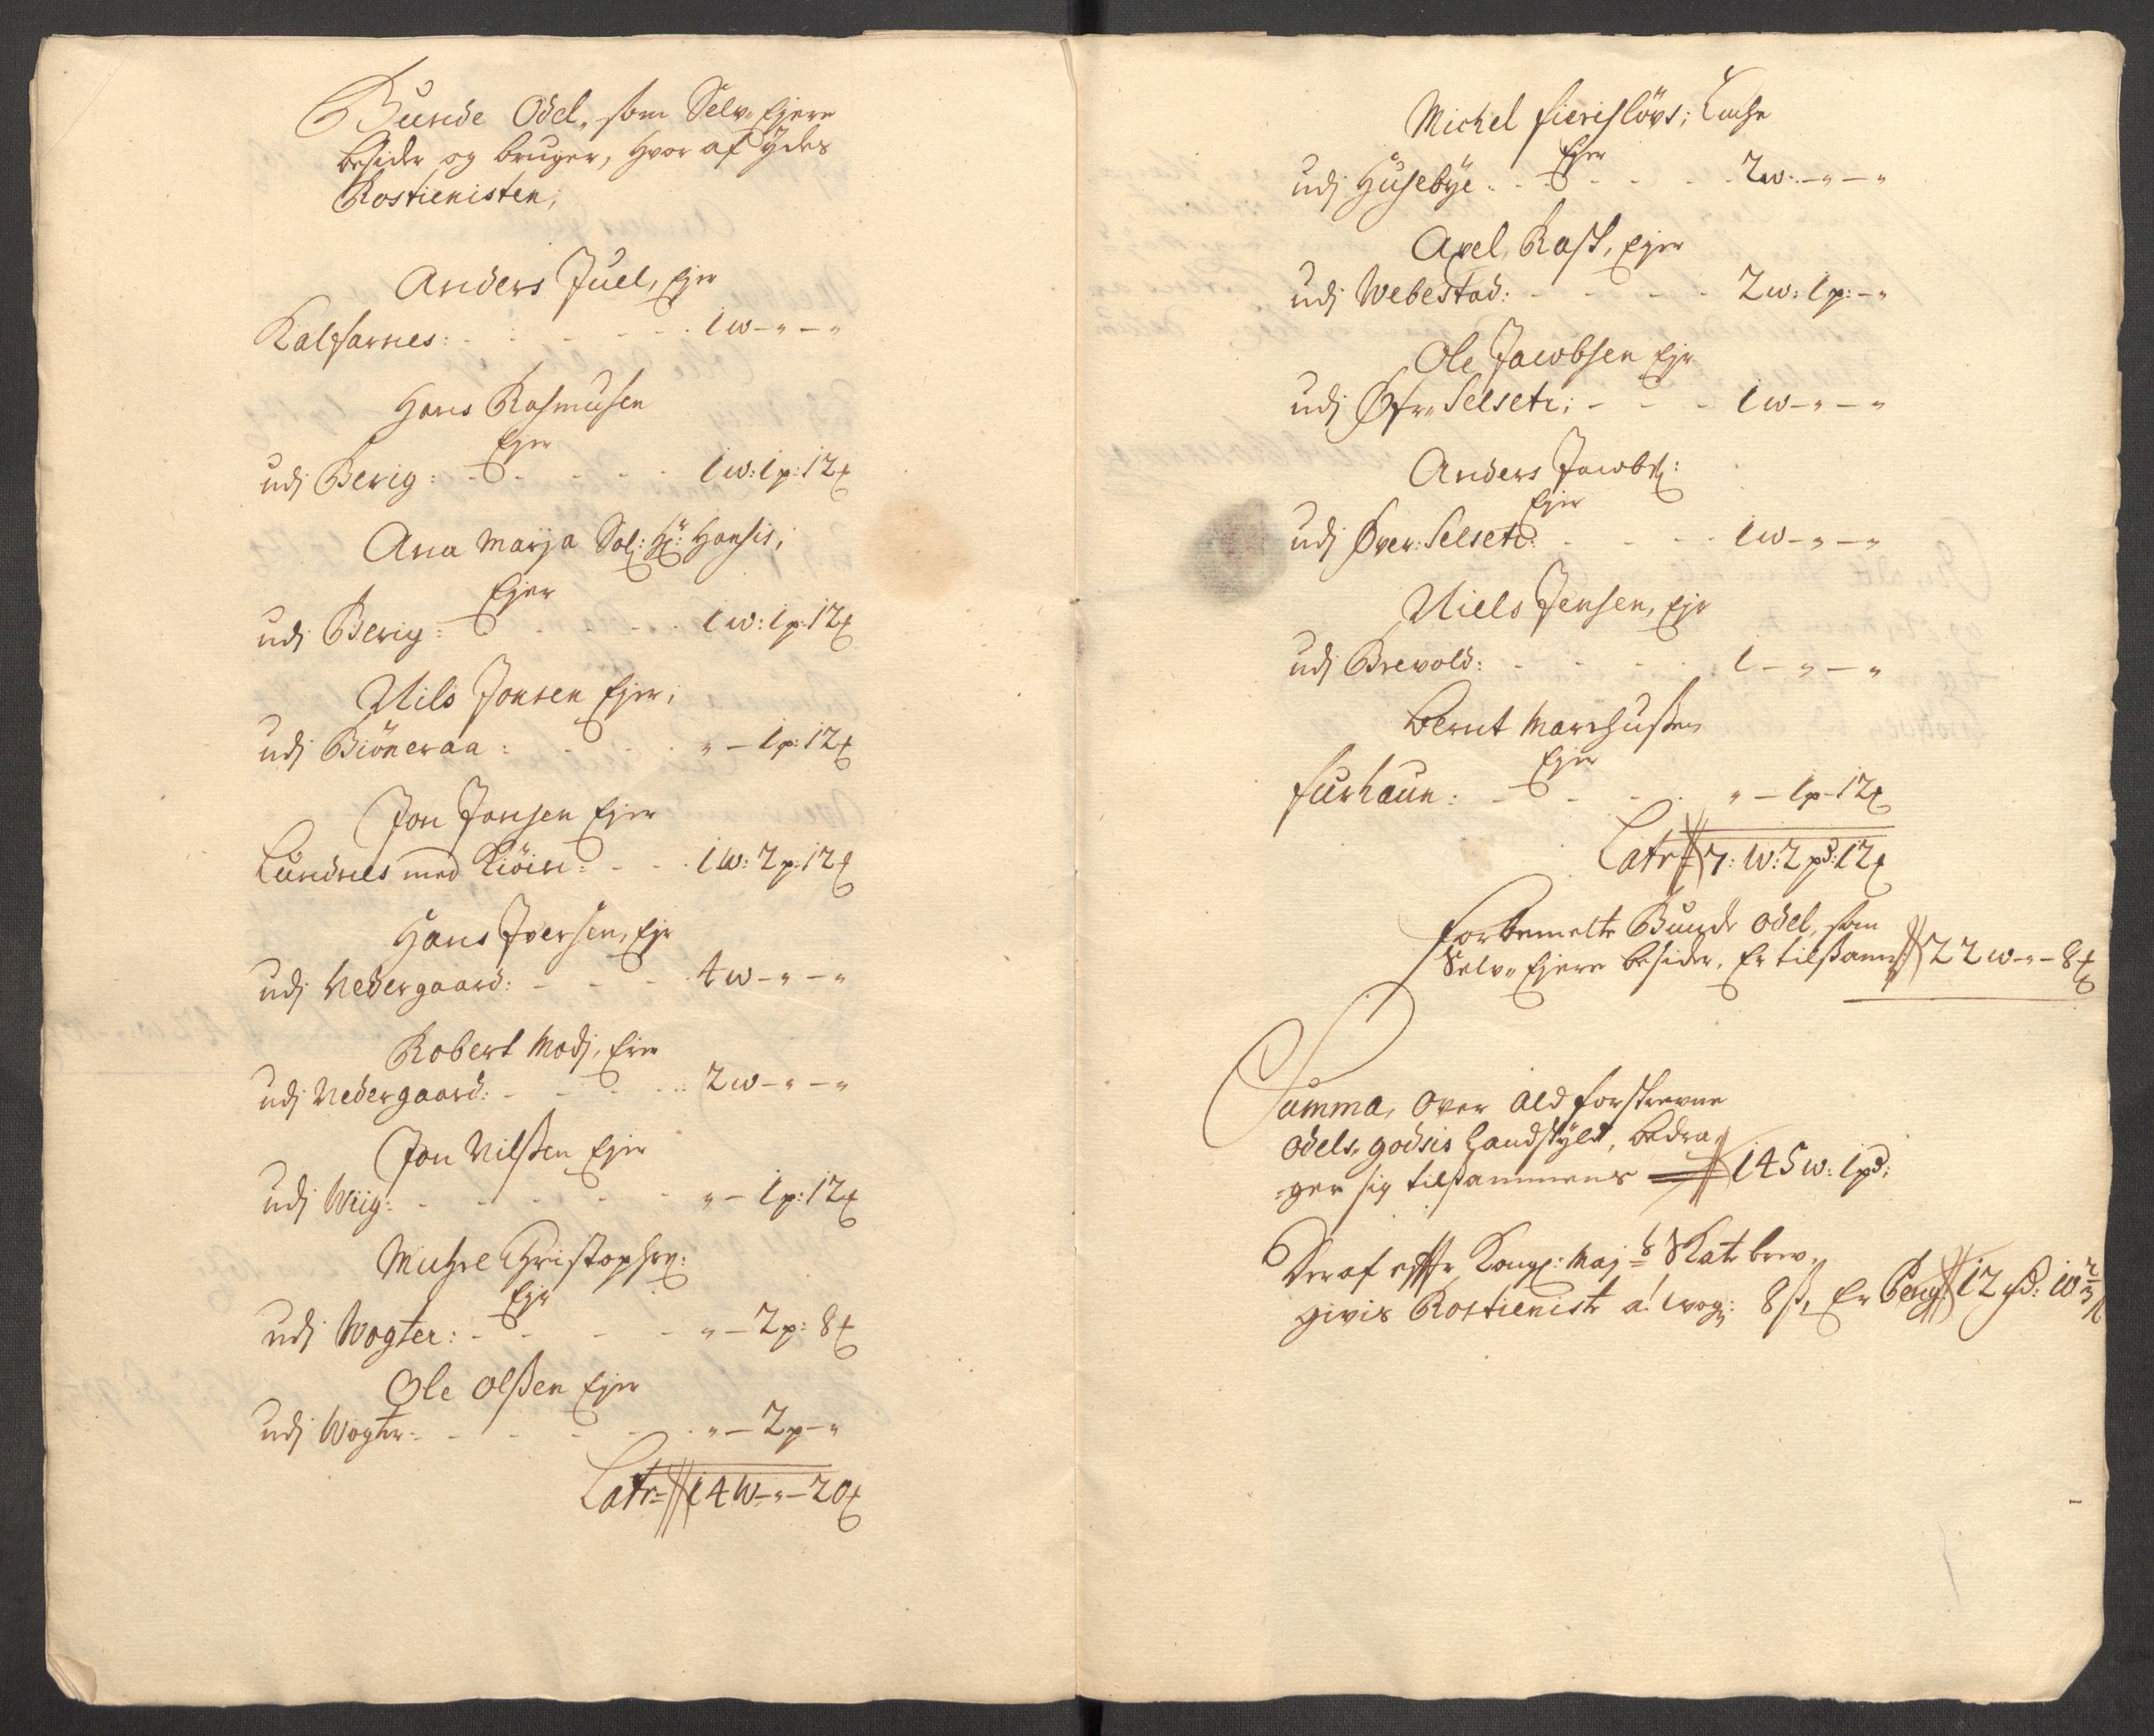 Bunde Odel, som Selv Ejere
besider og bruger, hvor af ydes
Rostienisten,
Anders Juel, Ejer
Kalfarnes: 1 w - " - "
Hans Rasmusen
Ejer
udj Berig: 1 w: 1 p: 12
Ana Marja Sal: Hr: Hansis,
Ejer
udj Berig: 1 w: 1 p: 12
Nils Jonsen Ejer,
udj Biöneraa: " - 1 p: 12
Jon Jonsen Ejer
Lundnes med 1 w: 2 p: 12
Hans Iversen, Ejr
udj Nedergaard: 4 w - " - "
Robert Modj, Eier
udj Nedergaard: 2 w - " - "
Jon Nilssen Ejer
udj Wiig: " - 1 p: 12
Michel Christophr:
Ejr
udj Wogter: " - 2 p: 8
Ole Olssen Ejer
udj Wogter: " - 2 p - "
Latr 14 w - " - 20
Michel
Ejer
udj Husebye: 2 w: - " - "
Axel Rask, Ejer
udj Webestad: 2 w: 1 p: - "
Ole Jacobsen Ejr
udj Øfr Selsetr: 1 w - " - "
Anders Jacobs:
Ejer
udj Øver Selsetr: 1 w - " - "
Niels Jensen, Ejr
udj Brevold: 1 - " - "
Bernt Marchussen
Ejer
furhaun: " - 1 p - 12
Latr 7: w: 2 pd: 12
forbemelte Bunde odel, som
Selv Ejere besider, Er tilsamm 22 w - " - 8
Summa, over ald forskrevne
odels godsis Landskyld, bedra
ger sig tilsammens 145 w: 1 pd:
Deraf efter Kongl: Maj Skatt brev
givis Rostieniste a! wog: 8 s, Er Peng 12